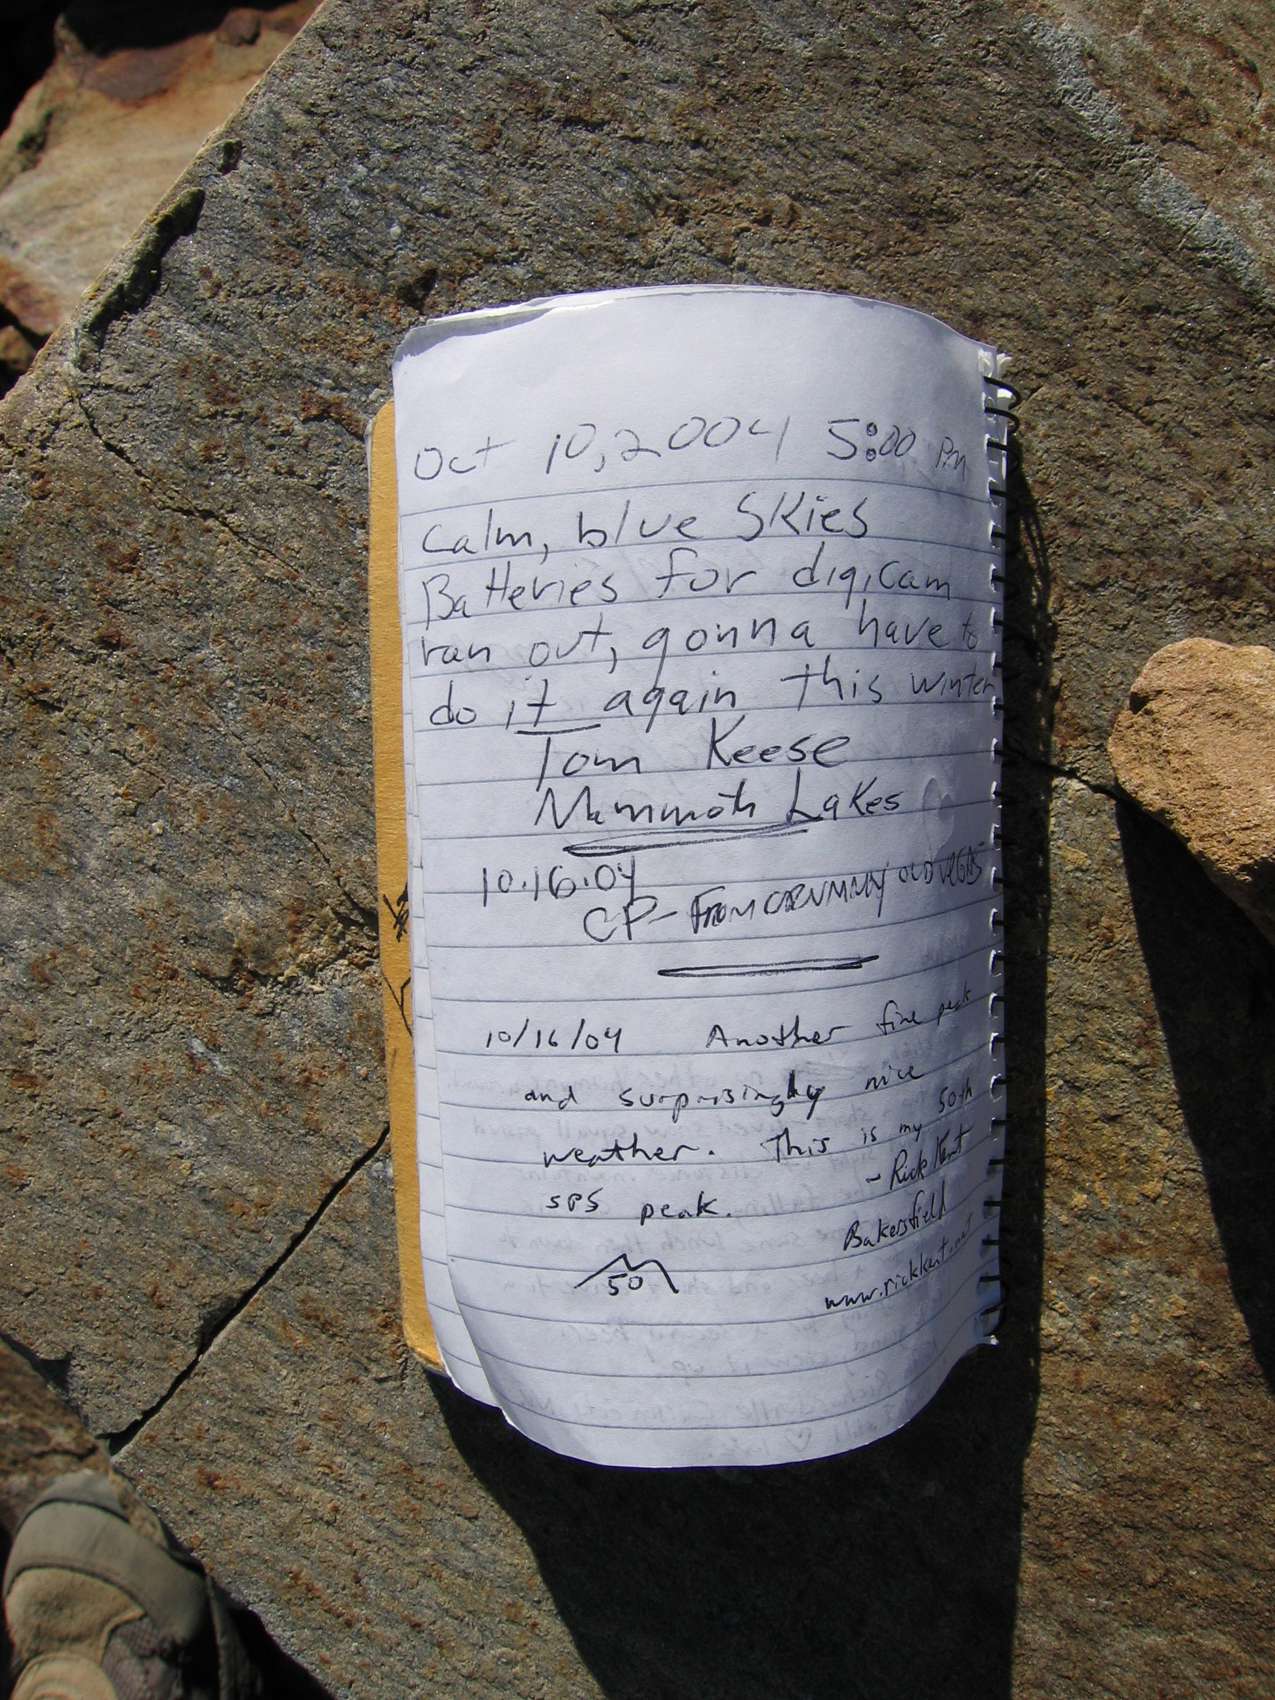 Oct 10, 2004 5:00 PM
Calm, blue skies
Batteries for digicam
ran out, gonna have to
do it again this winter
Tom Keese
Mammoth Lakes
10.16.04
CP- FROM
10/16/04 Another fine peak
and surprisingly nice
weather. This is my 50th
SPS peak. - Rick Kent
Bakersfield
www.rickkent.net
50